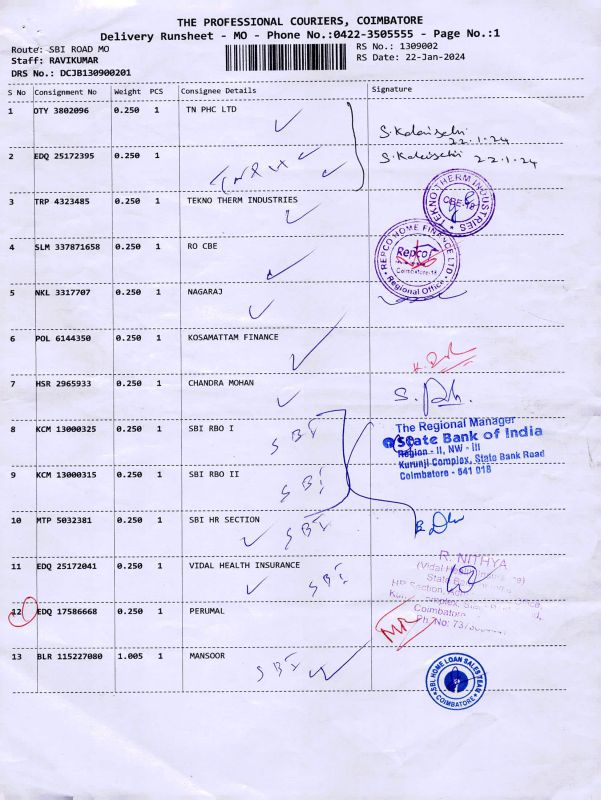 THE PROFESSIONAL COURIERS, COIMBATORE
Delivery Runsheet - MO - Phone No.:0422-3505555 - Page No.:1
Route: SBI ROAD MO
Staff: RAVIKUMAR
DRS No.: DCJB130900201
RS No.: 1309002
RS Date: 22-Jan-2024
S No Consignment No Weight PCS Consignee Details Signature
1 OTY 3802096 0.250 1 TN PHC LTD
22.1.24
2 EDQ 25172395 0.250 1
22.1.24
3 TRP 4323485 0.250 1 TEKNO THERM INDUSTRIES
TEKNO THERM INDUSTRIES
CBE-18
4 SLM 337871658 0.250 1 RO CBE
REPCO HOME FINANCE LTD
Repco
Coimbatore-18
Regional Office
5 NKL 3317707 0.250 1 NAGARAJ
6 POL 6144350 0.250 1 KOSAMATTAM FINANCE
7 HSR 2965933 0.250 1 CHANDRA MOHAN
8 KCM 13000325 0.250 1 SBI RBO I
SBI
The Regional Manager
State Bank of India
Region - II, NW - III
Kurunji Complex, State Bank Road
Coimbatore - 641 018
9 KCM 13000315 0.250 1 SBI RBO II
SBI
10 MTP 5032381 0.250 1 SBI HR SECTION
SBI
11 EDQ 25172041 0.250 1 VIDAL HEALTH INSURANCE
SBI
R. NITHYA
(Vidal
State
HR Section,
Coimbatore
Ph No:
12 EDQ 17586668 0.250 1 PERUMAL
13 BLR 115227080 1.005 1 MANSOOR
SBI
SBI HOME LOAN SALES TEAM
COIMBATORE